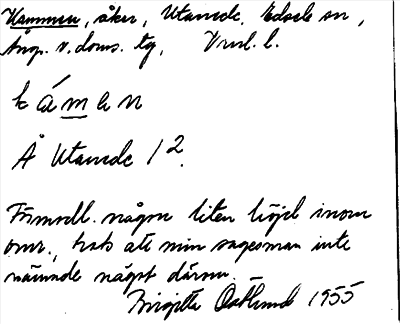 Kammen, åker, Utanede, Edsele sn,
Ång. v. doms. tg, Vnl. l.
kámen
Å Utanede 1 2.
Förmodl. någon liten höjd inom
omr., trots att min sagesman inte
nämnde något därom.
Birgitta Östlund 1955